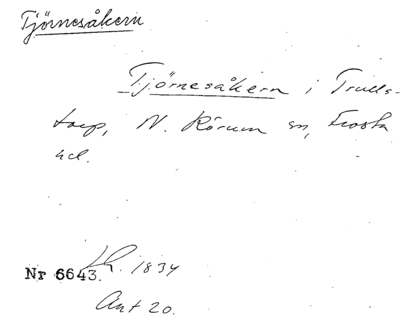 Tjörnesåkern
Tjörnesåkern i Trulls-
torp, N. Rörum sn, Frosta
hd.
Lh. 1834
Nr 6643.
Akt 20.